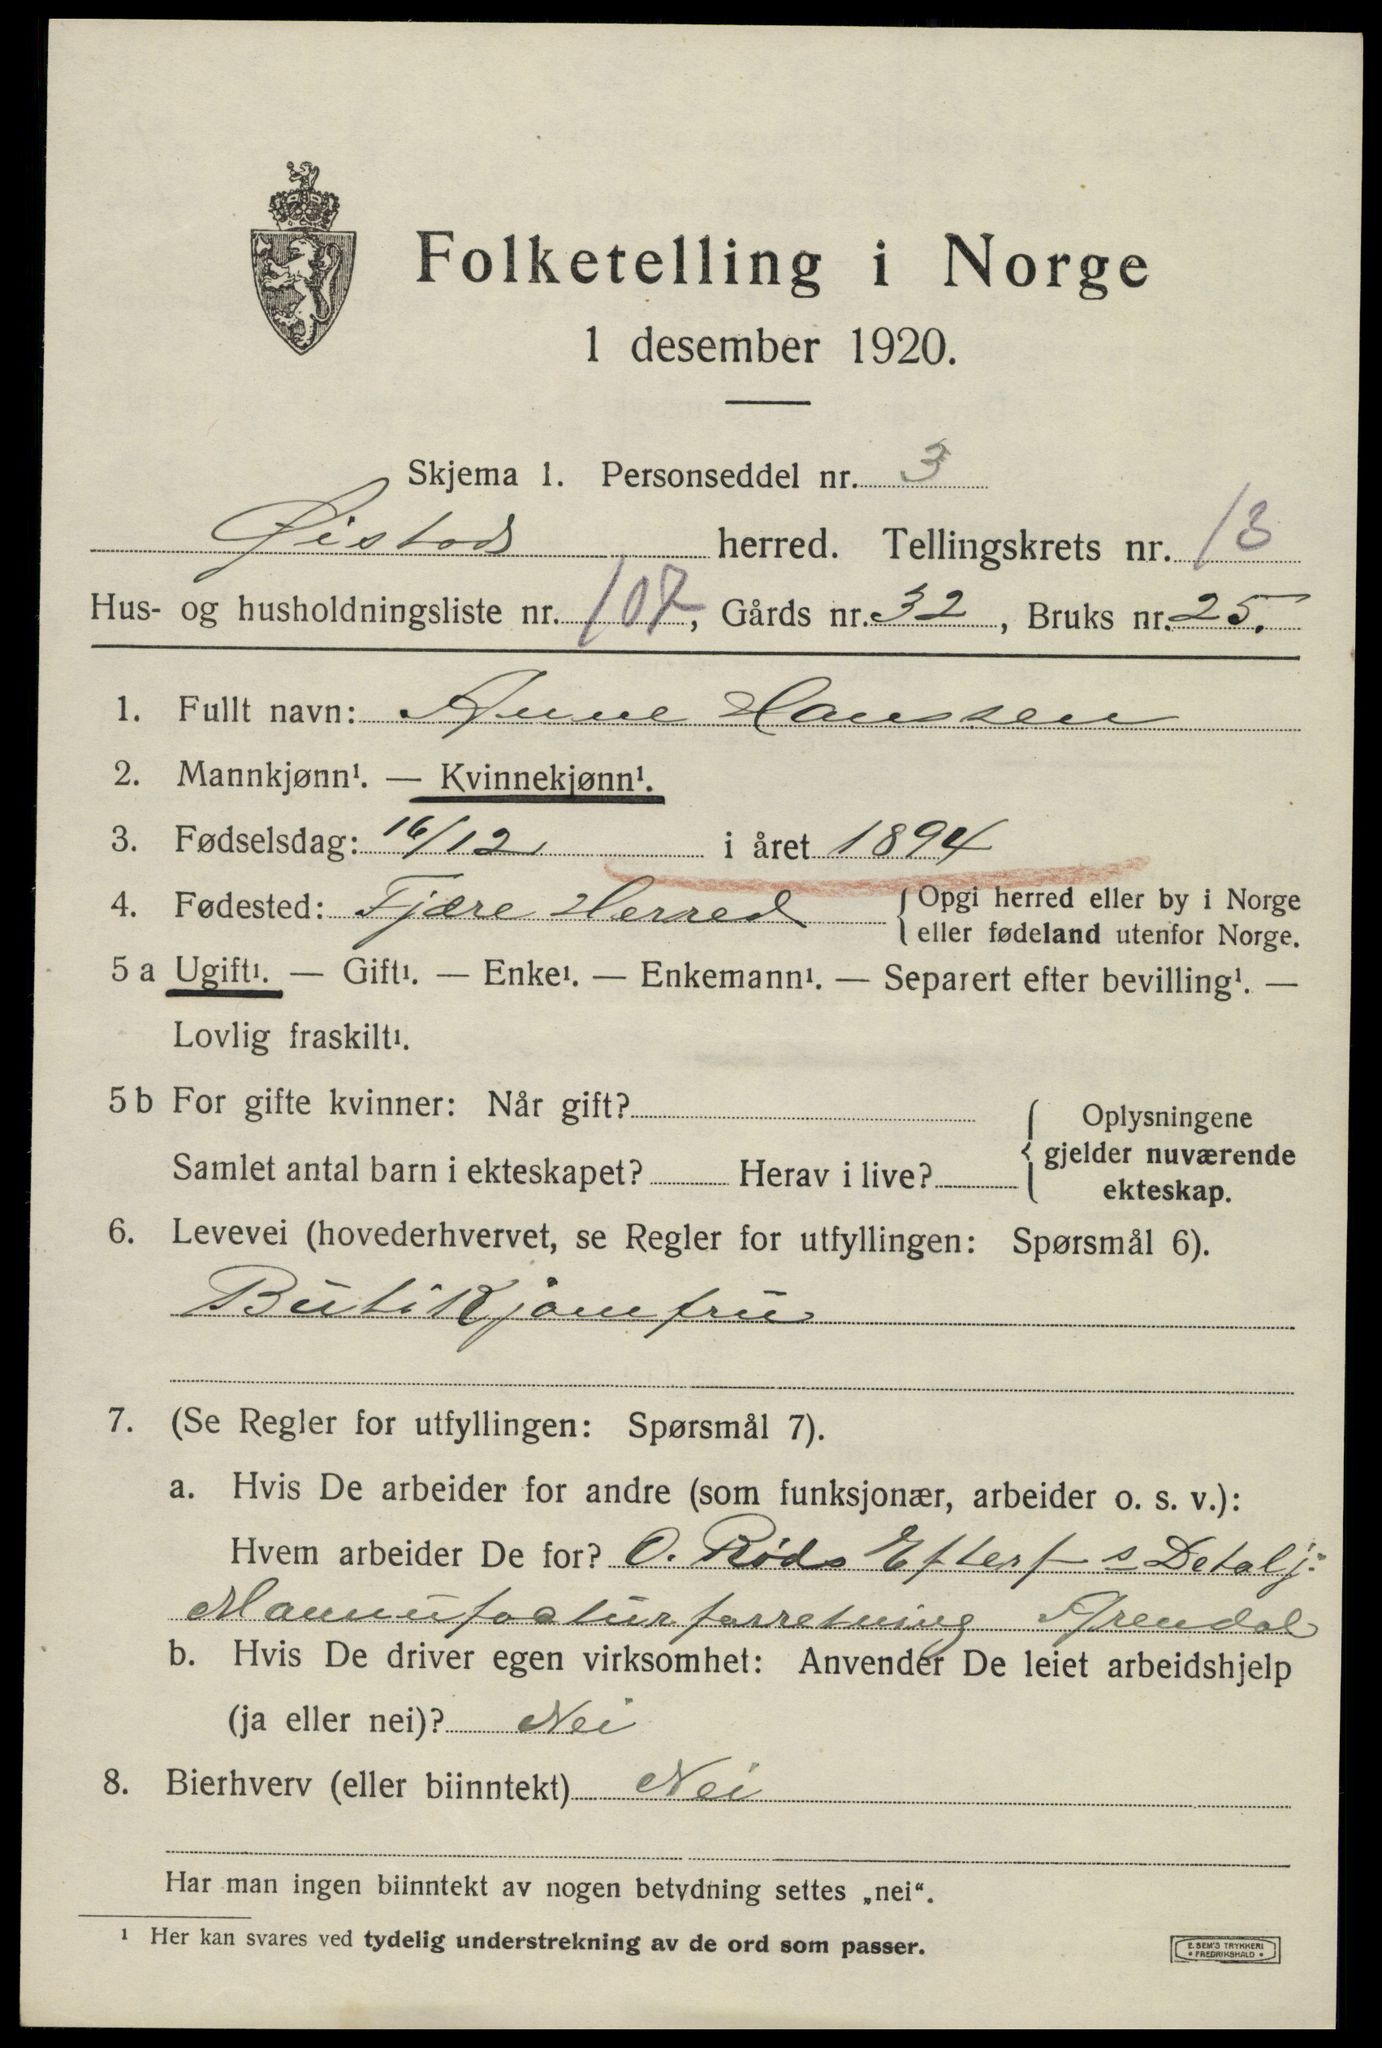 Folketelling i Norge
1 desember 1920.
Skjema 1. Personseddel nr. 3
Øistads herred. Tellingskrets nr. 13
Hus- og husholdningsliste nr. 107, Gårds nr. 32, Bruks nr. 25.
1. Fullt navn: Anne Hanssen
2. Mannkjønn¹. — Kvinnekjønn¹.
3. Fødselsdag: 16/12 i året 1894
4. Fødested: Fjære Herred { Opgi herred eller by i Norge
eller fødeland utenfor Norge.
5 a Ugift¹. — Gift¹. — Enke¹. — Enkemann¹. — Separert efter bevilling¹. —
Lovlig fraskilt¹.
5 b For gifte kvinner: Når gift?
Samlet antal barn i ekteskapet? Herav i live?
{ Oplysningene
gjelder nuværende
ekteskap.
6. Levevei (hovederhvervet, se Regler for utfyllingen: Spørsmål 6).
Butikjomfru
7. (Se Regler for utfyllingen: Spørsmål 7).
a. Hvis De arbeider for andre (som funksjonær, arbeider o. s. v.):
Hvem arbeider De for? O. Røds Efterf s Detalj:
Mannufacturforretning Arendal
b. Hvis De driver egen virksomhet: Anvender De leiet arbeidshjelp
(ja eller nei)? Nei
8. Bierhverv (eller biinntekt) Nei
Har man ingen biinntekt av nogen betydning settes „nei“.
¹ Her kan svares ved tydelig understrekning av de ord som passer.
E. SEM'S TRYKKERI
• FREDRIKSHALD •